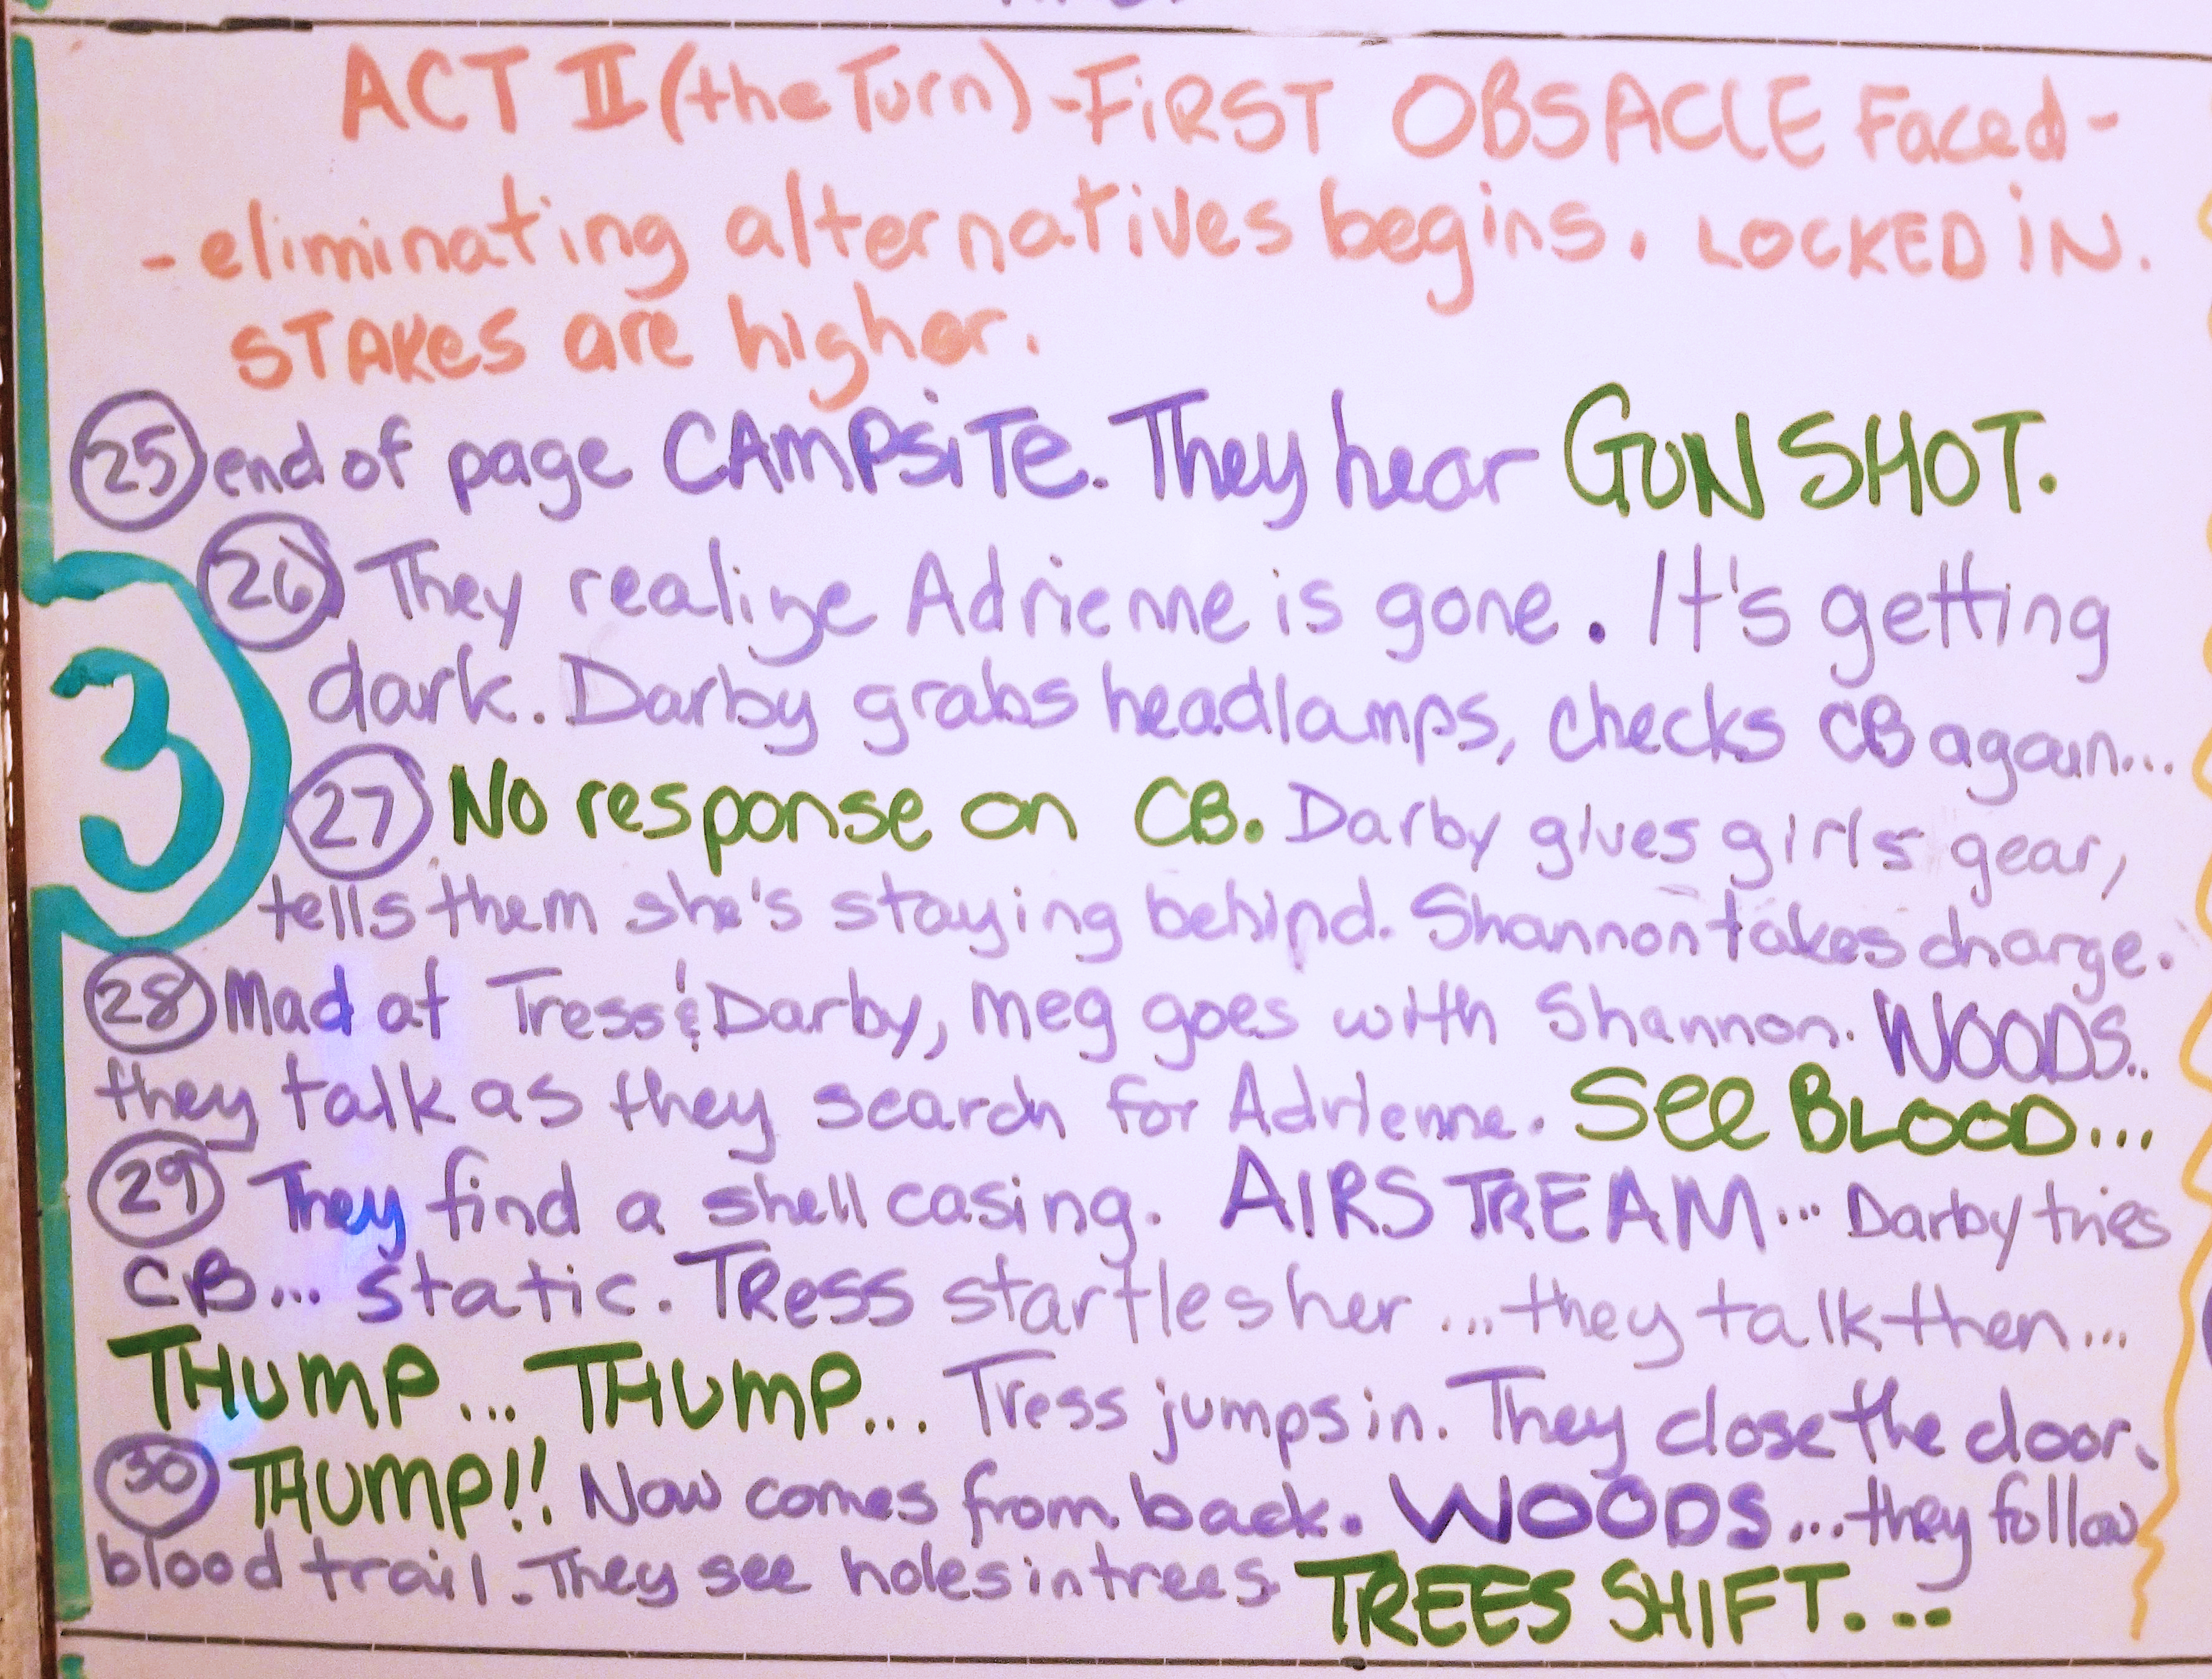 ACT II (the Turn) - FiRST OBSACLE Faced -
- eliminating alternatives begins. LOCKED iN.
STAKes are higher.
25 end of page CAMPSiTe. They hear GUNSHOT.
26 They realize Adrienne is gone. It's getting
dark. Darby grabs headlamps, checks CB again...
3
27 No response on CB. Darby gives girls gear,
tells them she's staying behind. Shannon takes charge.
28 Mad at Tress & Darby, Meg goes with Shannon. WOODS..
they talk as they search for Adrienne. See BLOOD...
29 They find a shell casing. AIRSTREAM... Darby tries
CB... static. TRess startles her ... they talk then...
THUMP... THUMP... Tress jumps in. They close the door.
30 THUMP!! Now comes from back. WOODS ... they follow
blood trail. They see holes in trees. TREES SHIFT...